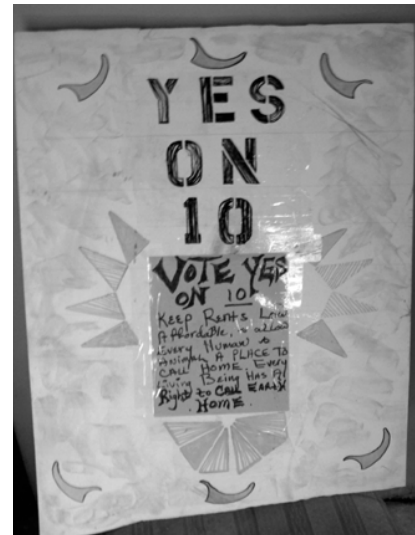 YES
ON
10
VOTE YES
ON 10
Keep Rents Low
Affordable, & allow
Every Human &
Animal A PLACE TO
CALL HOME. Every
Living Being Has A
Right to CALL EARTH
HOME.